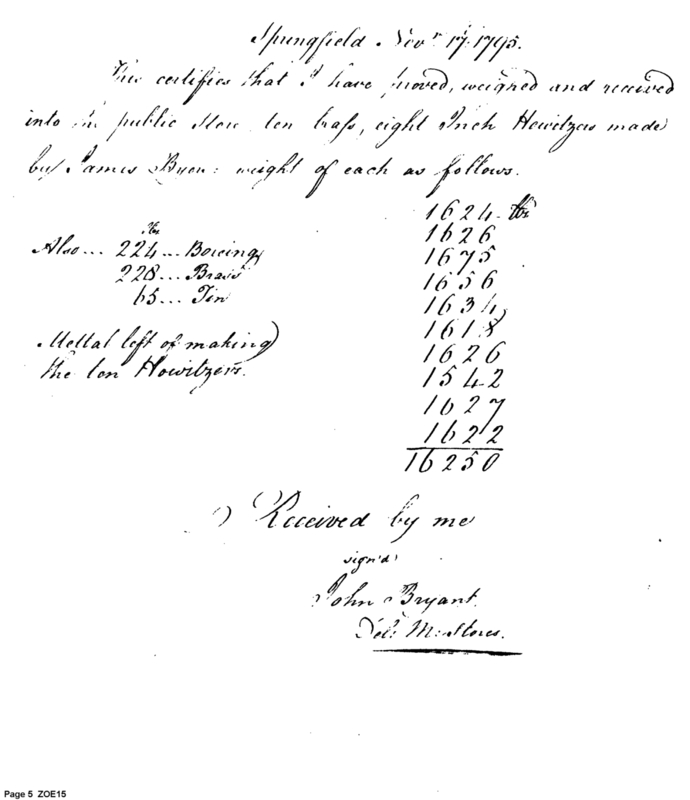 Springfield Novr 17: 1795.
This certifies that I have proved, weighed and received
into the public Store ten brass, eight Inch Howitzers made
by James Byers: weight of each as follows.
1624 lbs
1626
1675
1656
1634
1618
1626
1542
1627
1622
16250
lbs
Also... 224... Boreing
228... Brass
65... Tin
Mettal left of making
the ten Howitzers.
Received by me
sign'd
John Bryant.
M: Stores.
Page 5 ZOE15